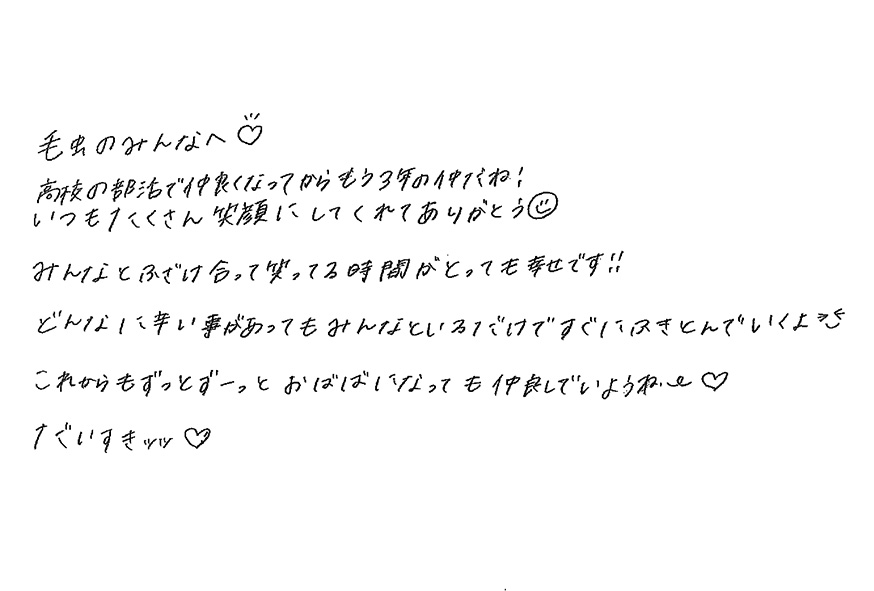 毛虫のみんなへ♡
高校の部活で仲良くなってからもう3年の仲だね!
いつもたくさん笑顔にしてくれてありがとう☺
みんなとふざけ合って笑ってる時間がとっても幸せです!!
どんなに辛い事があってもみんなといるだけですぐにふきとんでいくよ
これからもずっとずーっとおばばになっても仲良しでいようね♡
だいすきッッ♡